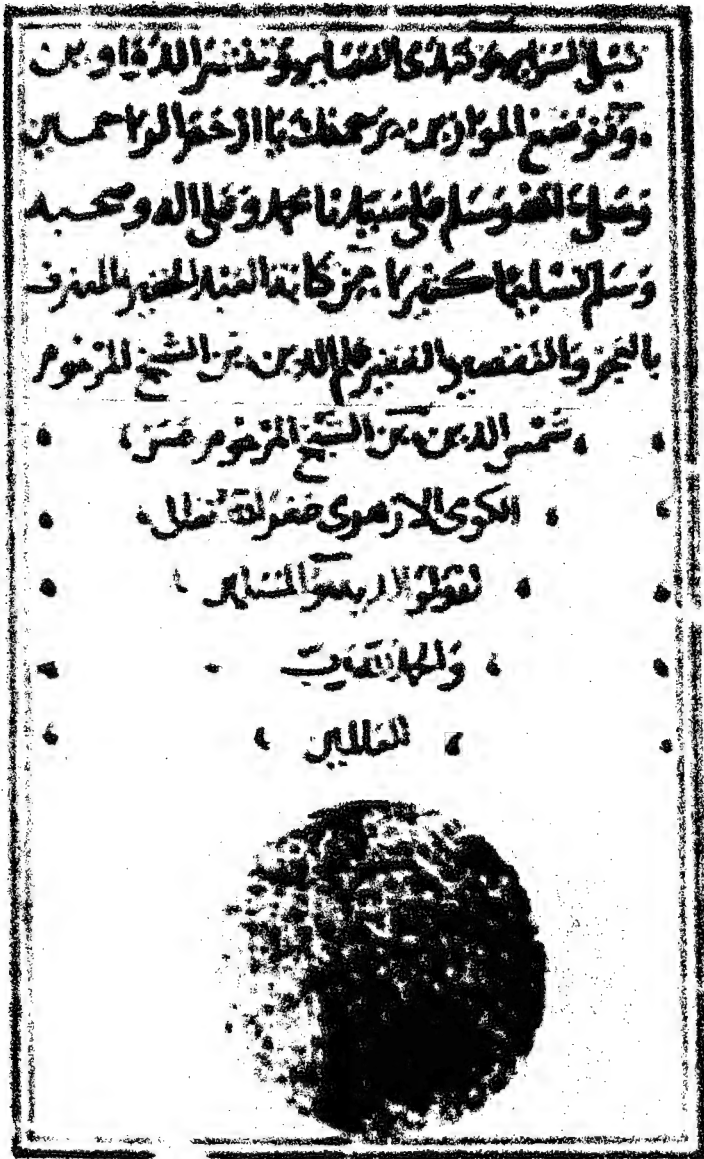 تبلى السرائر وتبدى الضمائر وتنشر الدواوين
وتوضع الموازين برحمتك يا ارحم الراحمين
وصلى الله وسلم على سيدنا محمد وعلى اله وصحبه
وسلم تسليما كثيرا من كاتبه العبد الحقير المعترف
بالعجز والتقصير الفقير علم الدين بن الشيخ المرحوم
شمس الدين بن الشيخ المرحوم حسن
الازهرى غفر الله تعالى
ولوالديه والمسلمين
والحمد لله رب
العالمين